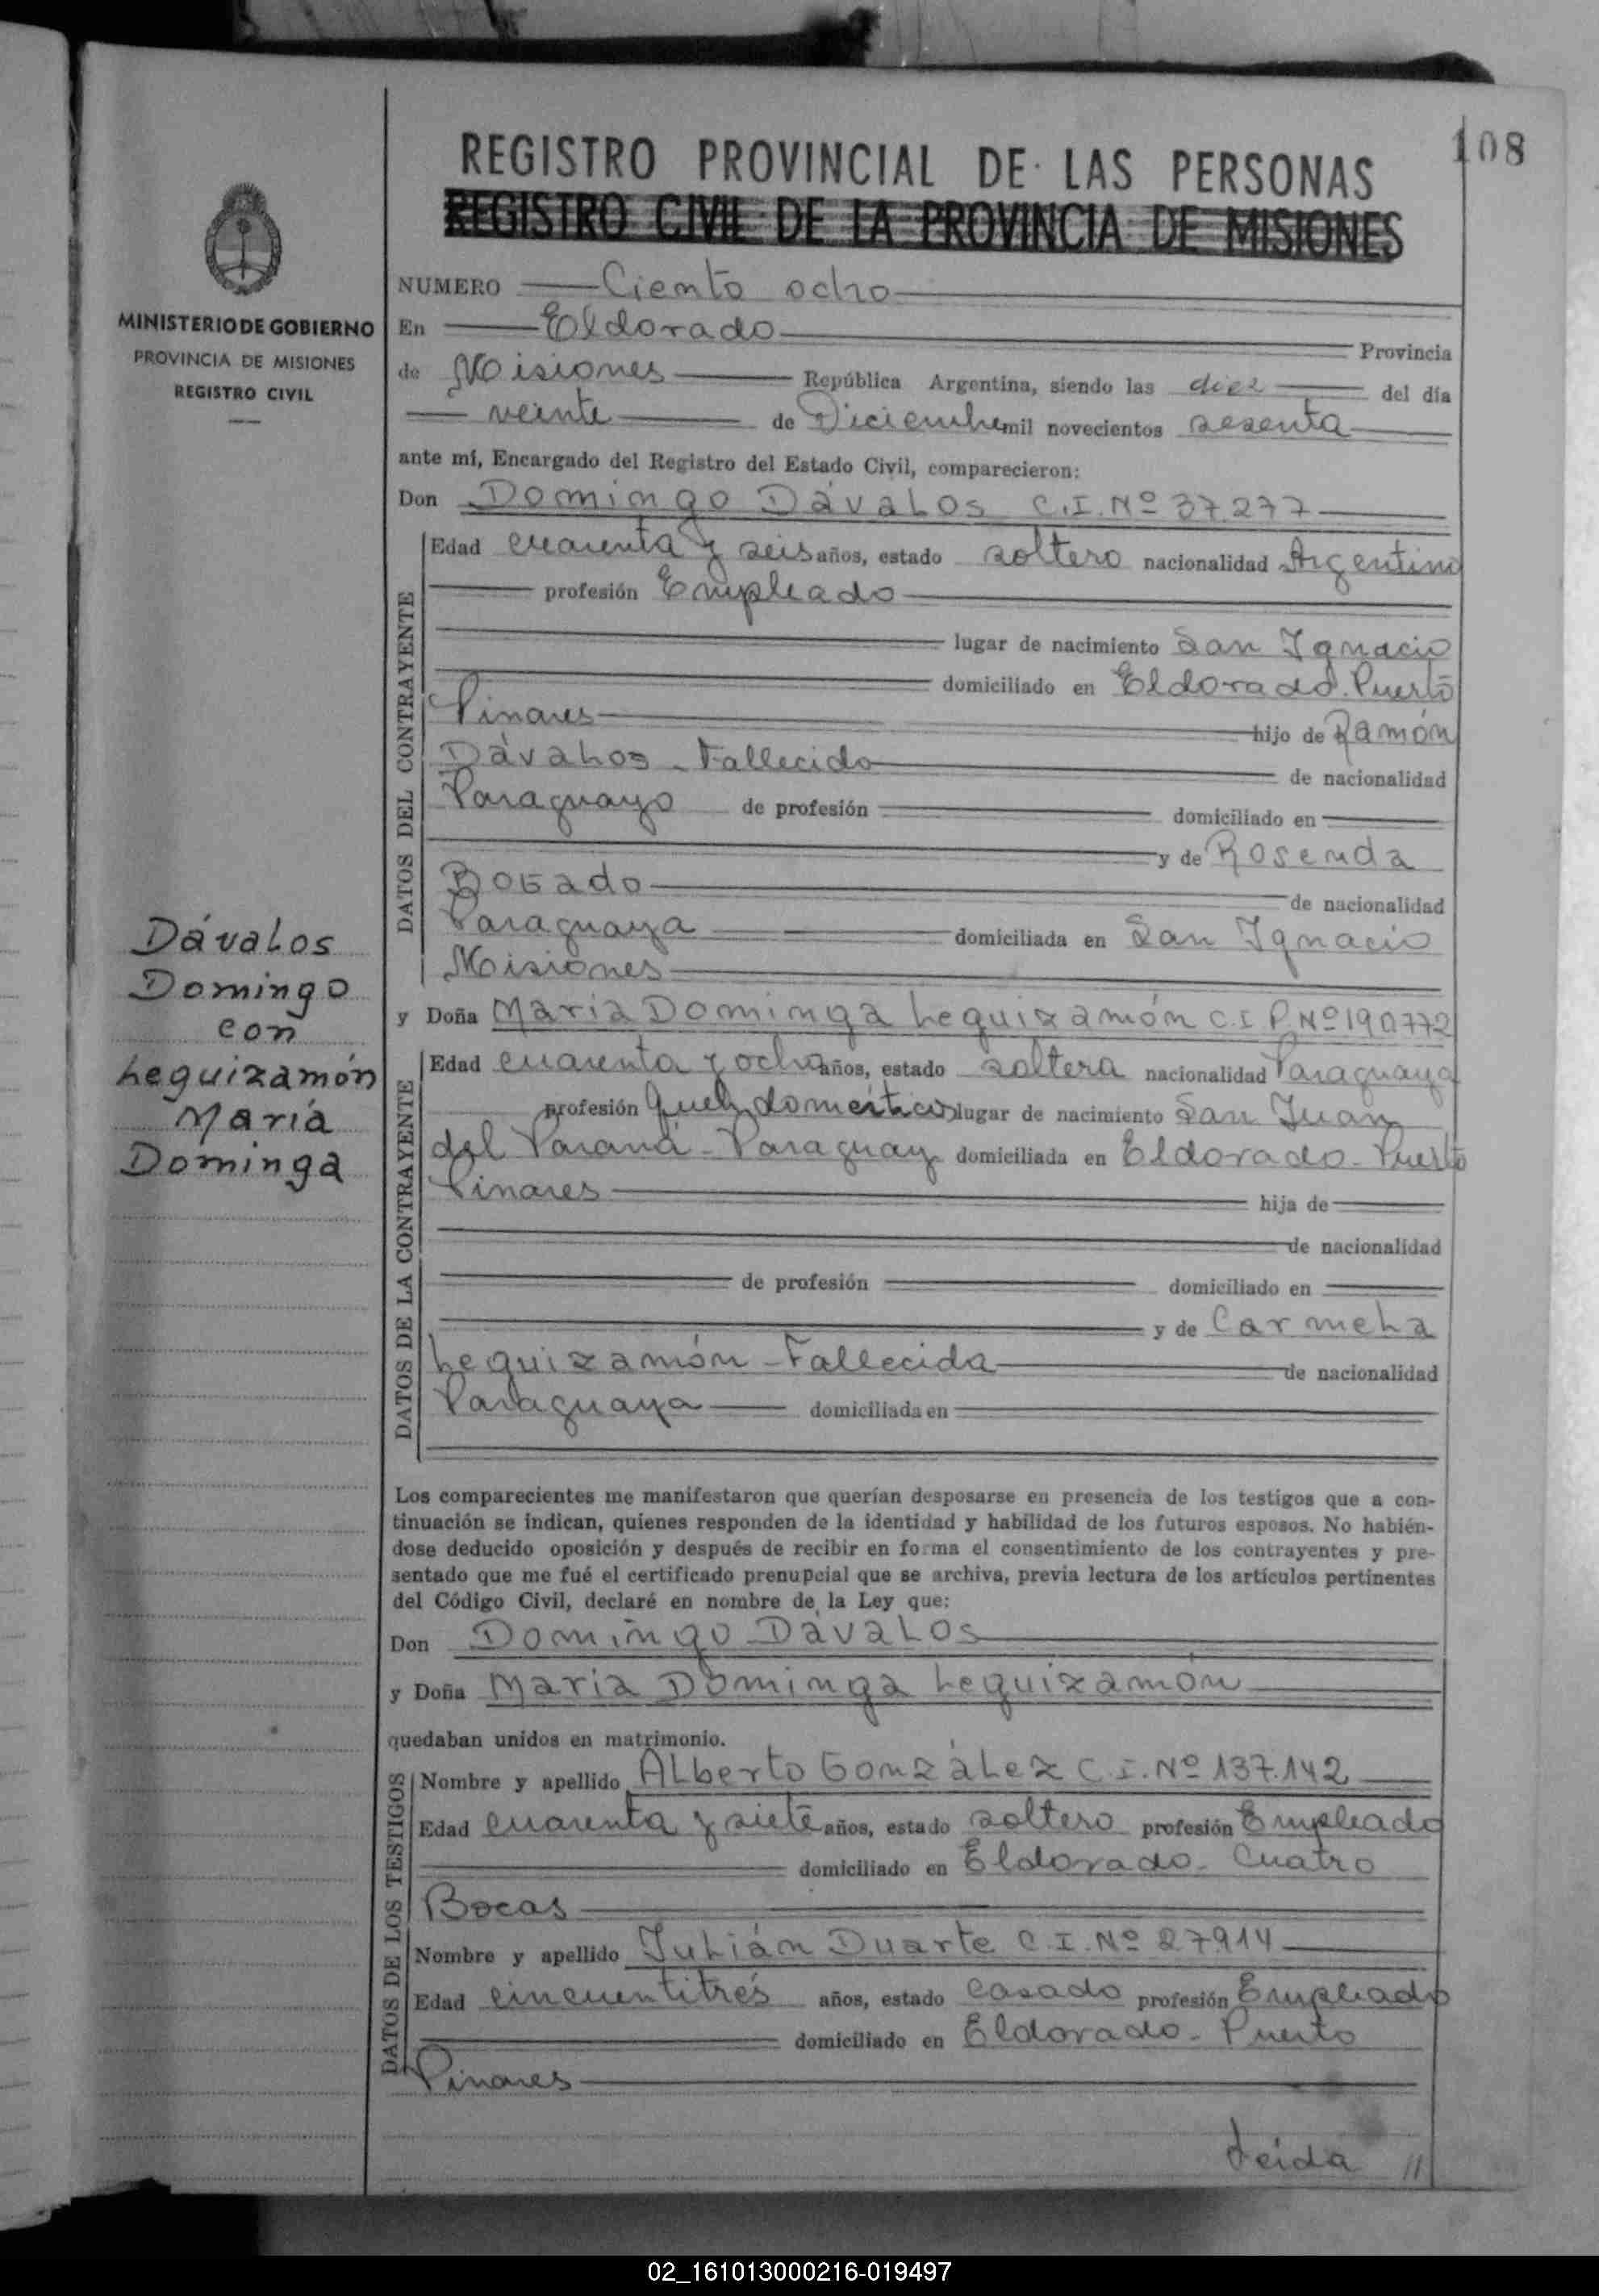 108
REGISTRO PROVINCIAL DE LAS PERSONAS
REGISTRO CIVIL DE LA PROVINCIA DE MISIONES
MINISTERIO DE GOBIERNO
PROVINCIA DE MISIONES
REGISTRO CIVIL
Dávalos
Domingo
con
Leguizamón
María
Dominga
NUMERO Ciento ocho
En Eldorado Provincia
de Misiones República Argentina, siendo las diez del día
veinte de Diciembre mil novecientos sesenta
ante mí, Encargado del Registro del Estado Civil, comparecieron:
Don Domingo Dávalos C.I. Nº 37.277
DATOS DEL CONTRAYENTE
Edad cuarenta y seis años, estado soltero nacionalidad Argentino
profesión Empleado
lugar de nacimiento San Ignacio
domiciliado en Eldorado. Puerto
Pinares hijo de Ramón
Dávalos - Fallecido de nacionalidad
Paraguayo de profesión domiciliado en
y de Rosenda
Bogado de nacionalidad
Paraguaya domiciliada en San Ignacio
Misiones
y Doña María Dominga Leguizamón C.I.P. Nº 190772
DATOS DE LA CONTRAYENTE
Edad cuarenta y ocho años, estado soltera nacionalidad Paraguaya
profesión Queh. domésticos lugar de nacimiento San Juan
del Paraná - Paraguay domiciliada en Eldorado - Puerto
Pinares hija de
de nacionalidad
de profesión domiciliado en
y de Carmela
Leguizamón - Fallecida de nacionalidad
Paraguaya domiciliada en
Los comparecientes me manifestaron que querían desposarse en presencia de los testigos que a con-
tinuación se indican, quienes responden de la identidad y habilidad de los futuros esposos. No habién-
dose deducido oposición y después de recibir en forma el consentimiento de los contrayentes y pre-
sentado que me fué el certificado prenupcial que se archiva, previa lectura de los artículos pertinentes
del Código Civil, declaré en nombre de la Ley que:
Don Domingo Dávalos
y Doña María Dominga Leguizamón
quedaban unidos en matrimonio.
DATOS DE LOS TESTIGOS
Nombre y apellido Alberto González C.I. Nº 137.142
Edad cuarenta y siete años, estado soltero profesión Empleado
domiciliado en Eldorado - Cuatro
Bocas
Nombre y apellido Julián Duarte C.I. Nº 27.914
Edad cincuentitrés años, estado casado profesión Empleado
domiciliado en Eldorado - Puerto
Pinares
Leida //
02_161013000216-019497